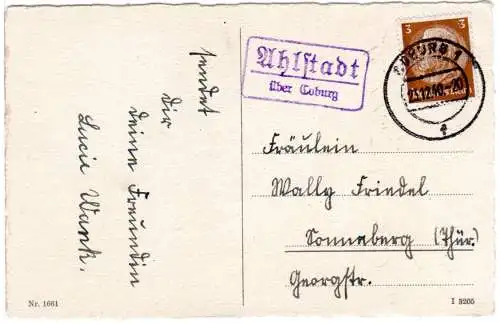 sendet
dir
deine Freundin
Lucie Wank.
Ahlstadt
über Coburg
3
3
COBURG 1
23.12.40.-20
Fräulein
Wally Friedel
Sonneberg (Thür.)
Georgstr.
Nr. 1661
I 3205